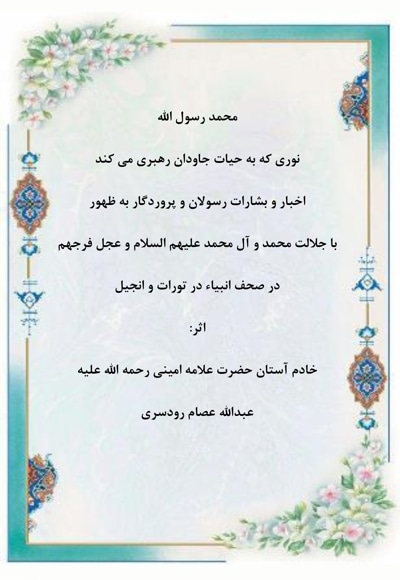 محمد رسول الله
نوری که به حیات جاودان رهبری می کند
اخبار و بشارات رسولان و پروردگار به ظهور
با جلالت محمد و آل محمد علیهم السلام و عجل فرجهم
در صحف انبیاء در تورات و انجیل
اثر:
خادم آستان حضرت علامه امینی رحمه الله علیه
عبدالله عصام رودسری